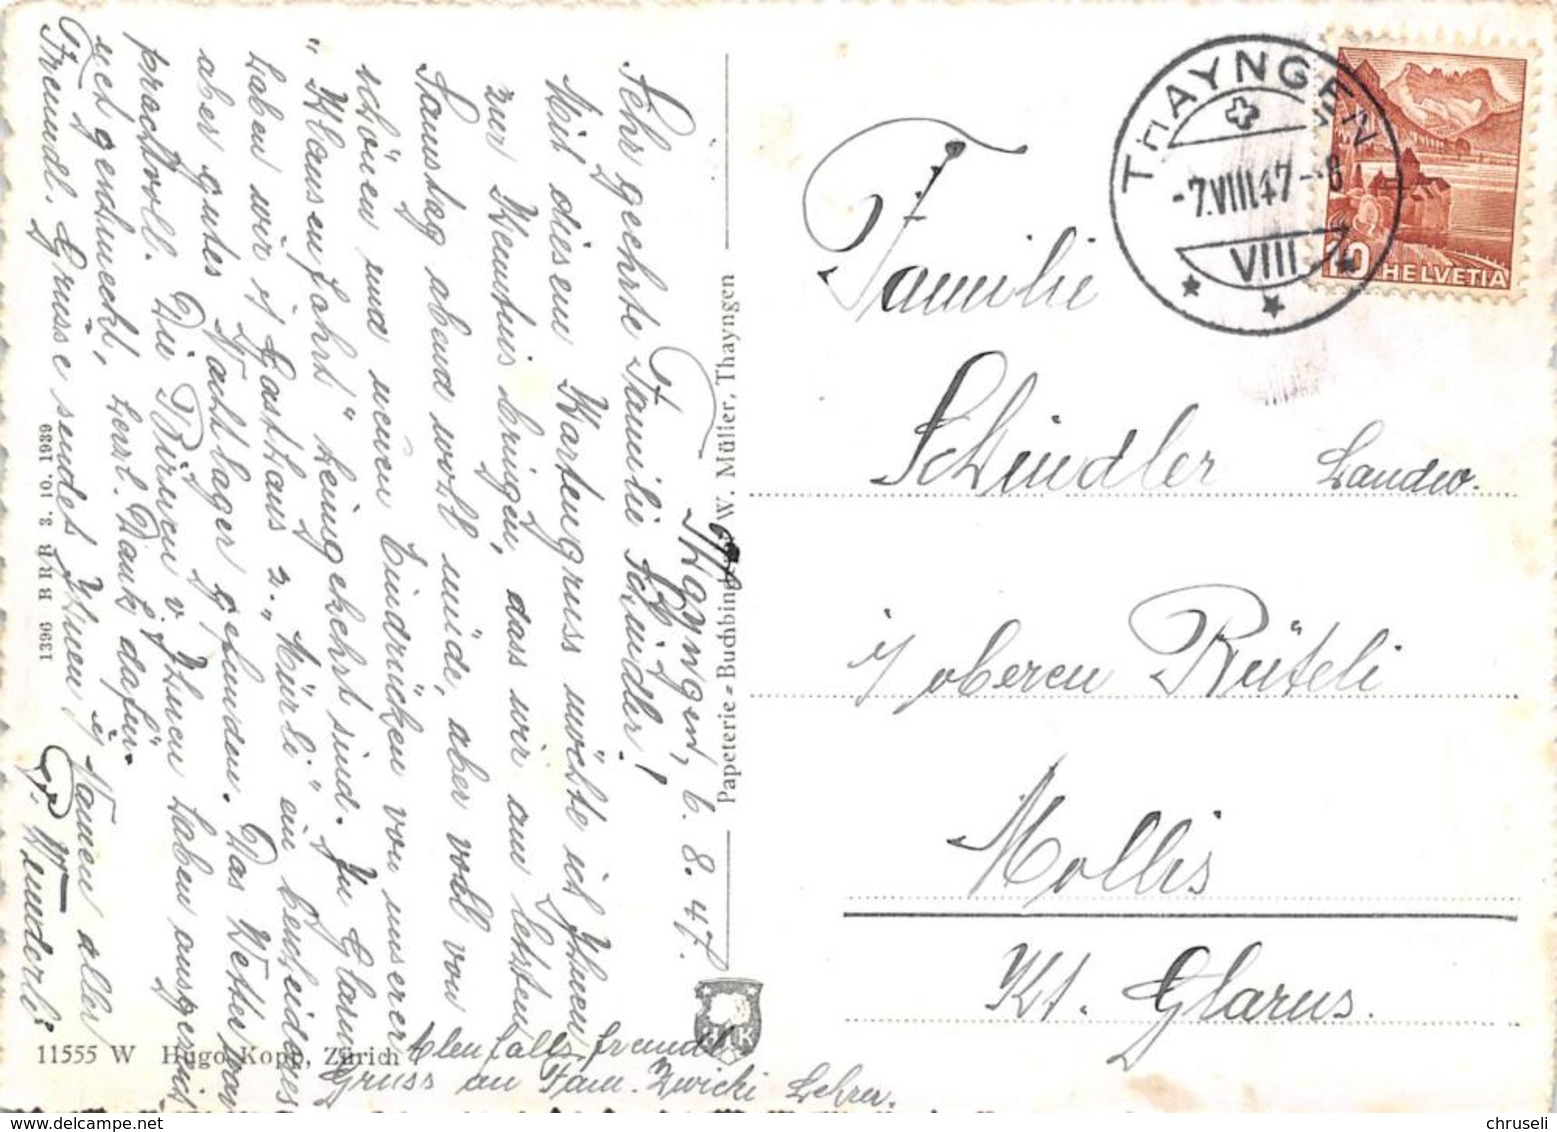 Thayngen, 6. 8. 47.
Sehr geehrte Familie Schindler!
Mit diesem Kartengruss möchte ich Ihnen
zur Kenntnis bringen, dass wir am letzten
Samstag abend wohl müde, aber voll von
schönen und neuen Eindrücken von unserer
"Klausenfahrt" heimgekehrt sind. In Glarus
haben wir i/ Gasthaus z. "Mürli" ein bescheidenes
aber gutes Nachtlager gefunden. Das Wetter war
prachtvoll. Die Birnen v. Ihnen haben ausgezeich-
net geschmeckt, herzl. Dank dafür.
Freundl. Grüsse sendet Ihnen i/ Namen aller
Wunderli
Ebenfalls freundl.
Gruss an Fam. Zwicki Lehrer.
Familie
Schindler Landw.
i/ oberen Rüteli
Mollis
Kt. Glarus.
THAYNGEN
-7.VIII.47-8
VIII
10 HELVETIA
Papeterie-Buchbinderei W. Müller, Thayngen
1396 BRB 3.10.1939
11555 W Hugo Kopp, Zürich
www.delcampe.net
chruseli